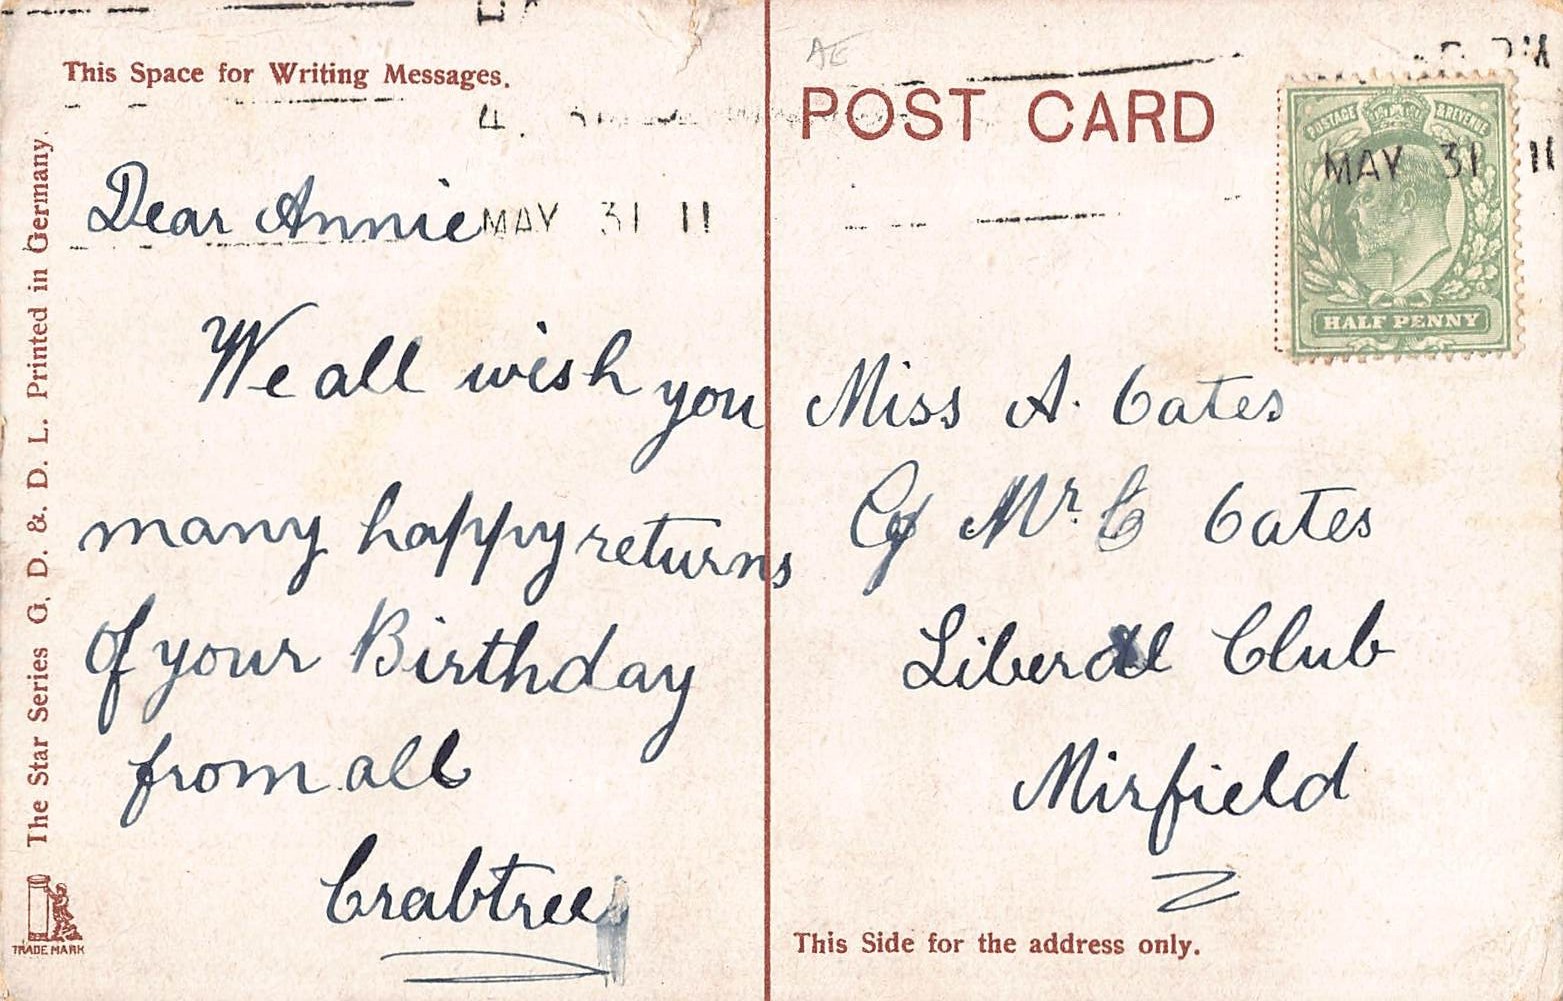 This Space for Writing Messages.
Dear Annie
We all wish you
many happy returns
of your Birthday
from all
Crabtree
The Star Series G. D. & D. L. Printed in Germany.
TRADE MARK
AE
POST CARD
POSTAGE & REVENUE
HALF PENNY
MAY 31 11
MAY 31 11
Miss A. Oates
C/o Mr. C Oates
Liberal Club
Mirfield
This Side for the address only.